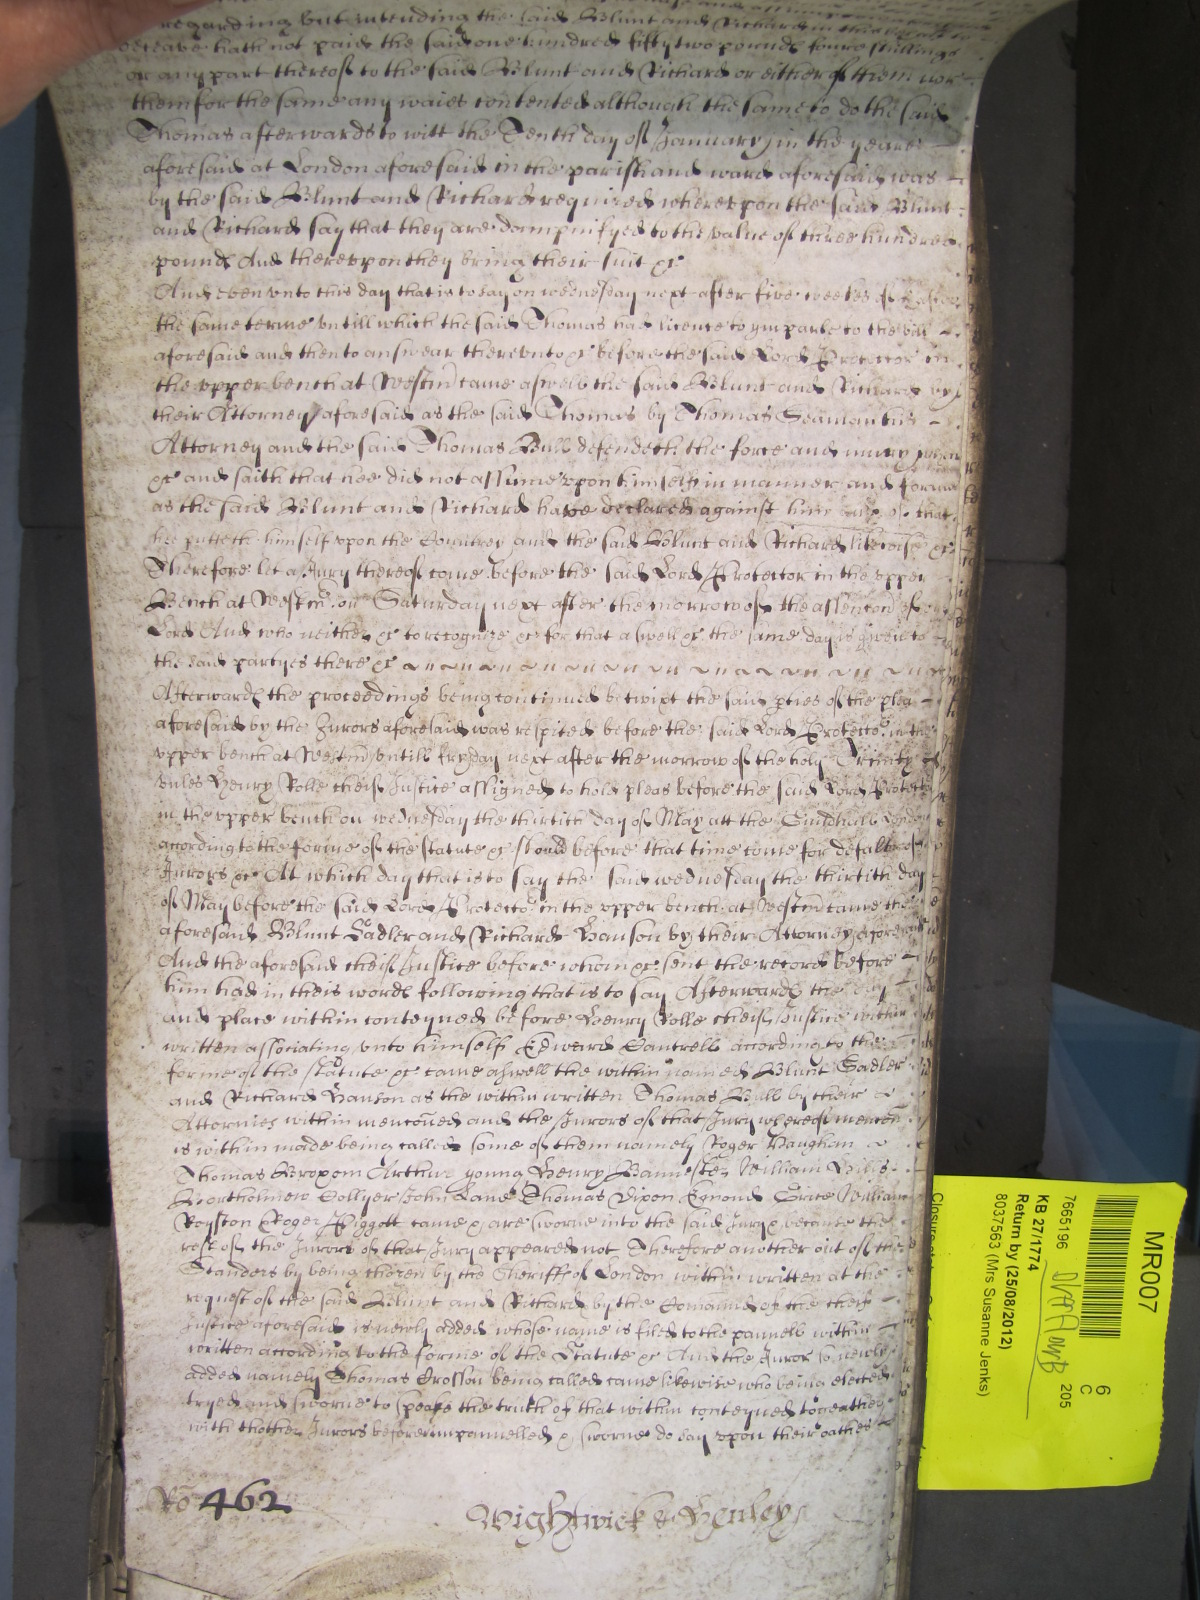 regarding but intending the said Blunt and Richard in this
deceave hath not paid the said one hundred fifty two pounds foure shillings
or any part thereof to the said Blunt and Richard or either of them nor
them for the same any waies contented although the same to do the said
Thomas afterwards to witt the Tenth day of January in the yeare
aforesaid at London aforesaid in the parish and ward aforesaid was
by the said Blunt and Richard required wherevpon the said Blunt
and Richard say that they are dampnifyed to the value of three hundred
pound And therevpon they bring their suit &c
And even vnto this day that is to say on wednesday next after five weekes of Easter
the same terme vntill which the said Thomas had licence to ymparle to the bill
aforesaid and then to answear therevnto &c before the said Lord Protector in
the vpper bench at Westm came aswell the said Blunt and Richard by
their Attorney aforesaid as the said Thomas by Thomas
Attorney and the said Thomas Bull defendeth the force and iniury when
&c and saith that hee did not assume vpon himself in manner and forme
as the said Blunt and Richard have declared against him And of that
hee putteth himself vpon the Countrey and the said Blunt and Richard likewise &c
Therefore let a Jury thereof come before the said Lord Protector in the vpper
Bench at Westm on Saturday next after the morrow of the assention of our
Lord And who neither &c to recognize &c for that aswell &c the same day is given to
the said partyes there &c
Afterwardes the proceedings being continued betwixt the said pties of the plea
aforesaid by the Jurors aforesaid was respited before the said Lord Protector in the
vpper bench at Westm vntill fryday next after the morrow of the holy Trinity
vnles Henry Rolle cheif Justice assigned to hold pleas before the said Lord Protector
in the vpper bench on wednesday the thirtith day of May att the Guildhall London
according to the forme of the statute &c should before that time come for default of
Jurors &c At which day that is to say the said wednesday the thirtith day
of May before the said Lord Protector in the vpper bench at Westm came the
aforesaid Blunt Sadler and Richard Hanson by their Attorney aforesaid
And the aforesaid cheif Justice before whom &c sent the record before
him had in theis wordes following that is to say Afterwardes the day
and place within conteyned before Henry Rolle cheif Justice within
written associating vnto himself Edward Cantrell according to the
forme of the statute &c came aswell the within named Blunt Sadler
and Richard Hanson as the within written Thomas Bull by their
Attornies within menconed and the Jurors of that Jury whereof mencon
is within made being called some of them namely Roger Vaughan
Thomas Broxom Arthur young Henry Bannester William Hills
Bartholmew Collyer John Lane Thomas Vixon Edmond Grice William
Royston Roger Piggott came & are sworne into the said Jury & because the
rest of the Jurors of that Jury appeared not Therefore another out of the
Standers by being chozen by the Sheriffs of London within written at the
request of the said Blunt and Richard by the Comaund of the cheif
Justice aforesaid is newly added whose name is filed to the pannell within
written according to the forme of the Statute &c And the Juror so newly
added namely Thomas Crosson being called came likewise who being elected
tryed and sworne to speake the truth of that within conteyned togeather
with thother Jurors before impannelled & sworne do say vpon their oathes
Ro 462
Wightwick & Henley
MR007
6
C
7665196
205
KB 27/1774
Return by (25/08/2012)
8037563 (Mrs Susanne Jenks)